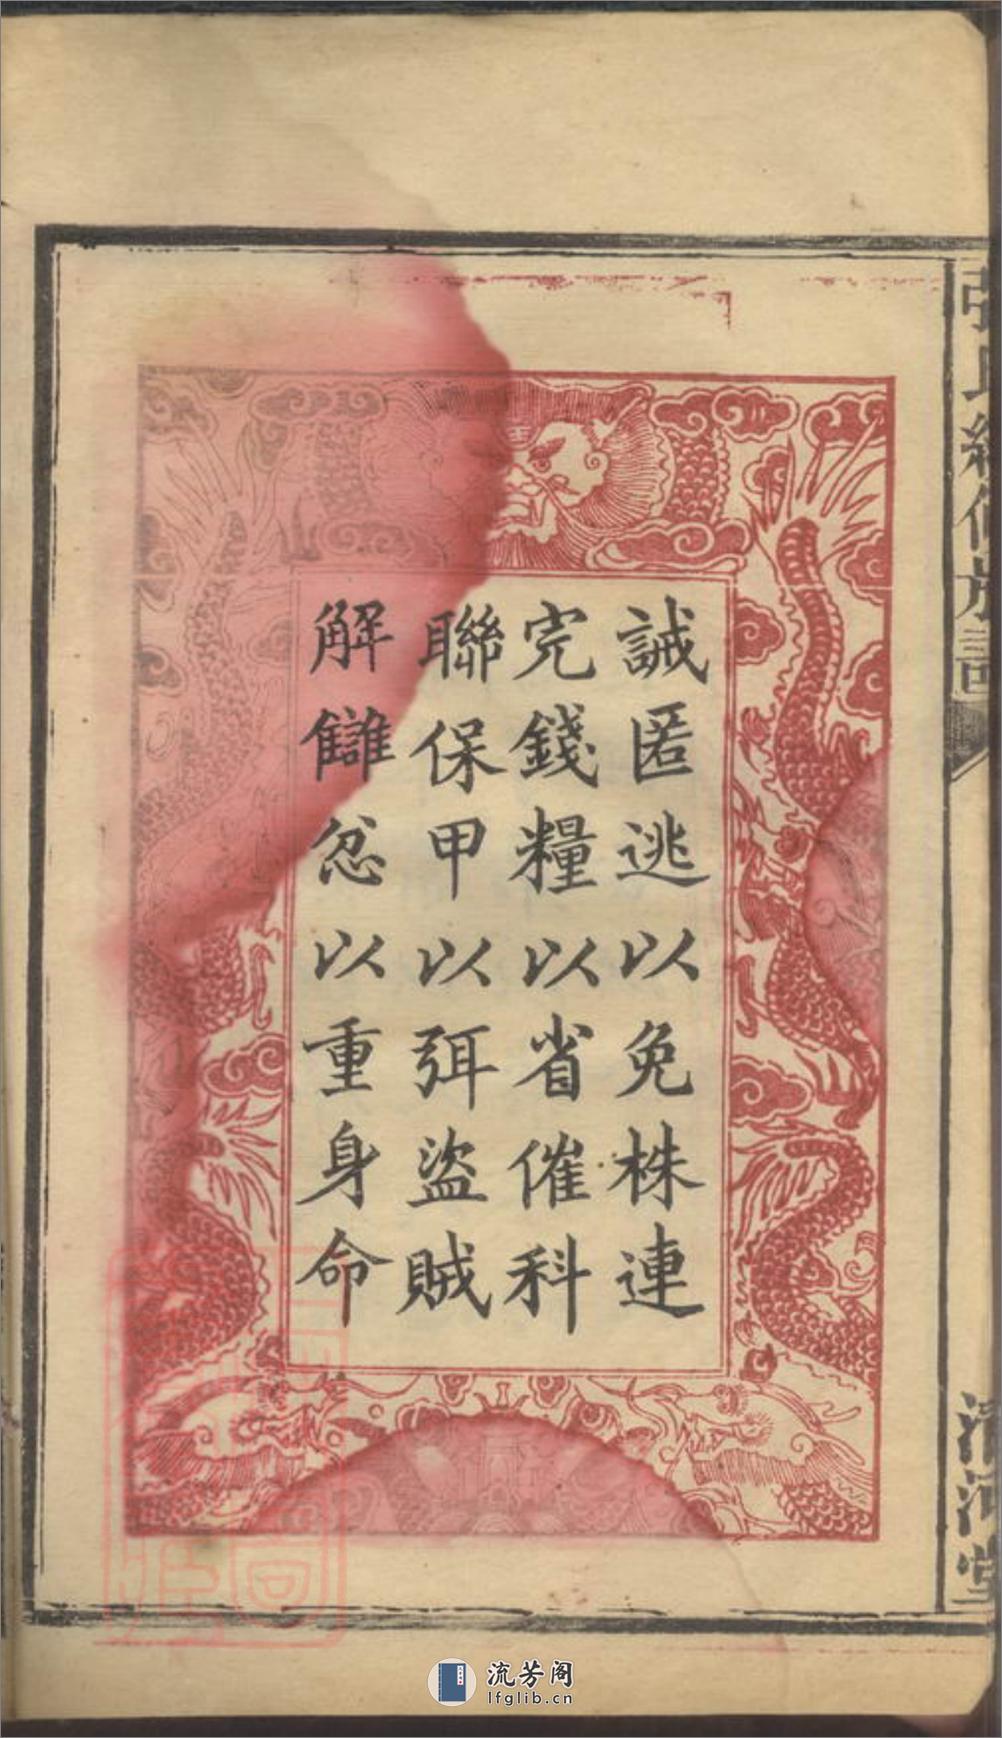 張氏續修族譜
清河堂
誡匿逃以免株連
完錢糧以省催科
聯保甲以弭盜賊
解讎忿以重身命
流芳阁
lfglib.cn